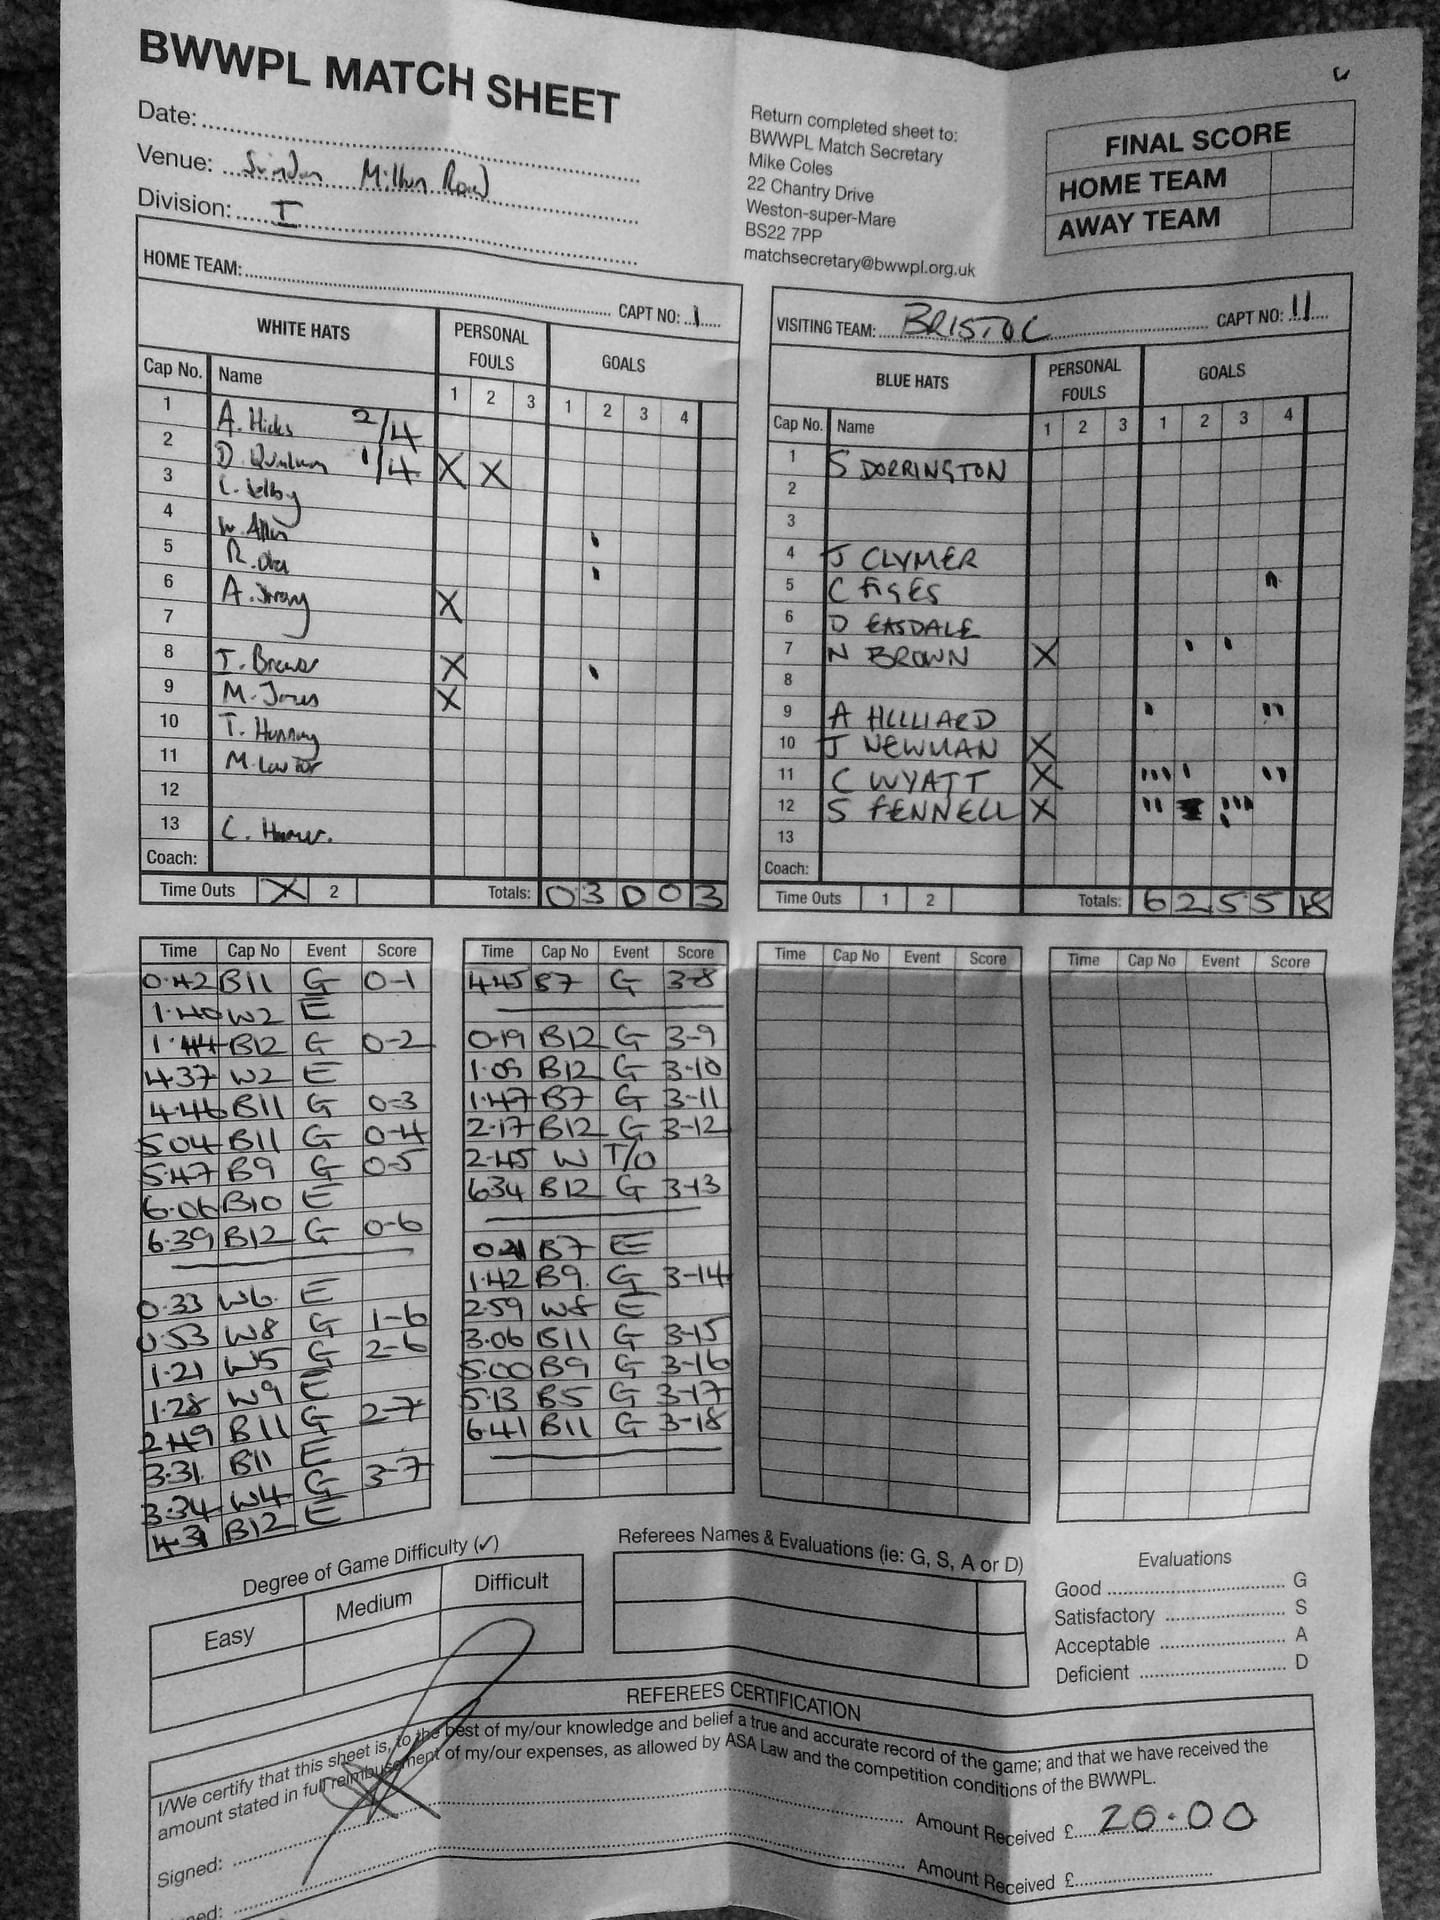 BWWPL MATCH SHEET
Date:
Venue: Swindon Milton Road
Division: I
Return completed sheet to:
BWWPL Match Secretary
Mike Coles
22 Chantry Drive
Weston-super-Mare
BS22 7PP
matchsecretary@bwwpl.org.uk
FINAL SCORE
HOME TEAM
AWAY TEAM
HOME TEAM: CAPT NO: 1
WHITE HATS PERSONAL FOULS GOALS
Cap No. Name 1 2 3 1 2 3 4
1 A. Hicks 2/4
2 D. 1/4 X X
3 L. Selby
4 W. Allen
5 R.
6 A. X
7
8 T. Brewer X
9 M. Jones X
10 T.
11 M.
12
13 C.
Coach:
Time Outs X 2 Totals: 0 3 0 0 3
VISITING TEAM: BRISTOL CAPT NO: 11
BLUE HATS PERSONAL FOULS GOALS
Cap No. Name 1 2 3 1 2 3 4
1 S DORRINGTON
2
3
4 J CLYMER
5 C FIGES
6 D EASDALE
7 N BROWN X
8
9 A HILLIARD
10 J NEWMAN X
11 C WYATT X
12 S FENNELL X
13
Coach:
Time Outs 1 2 Totals: 6 2 5 5 18
Time Cap No Event Score
0.42 B11 G 0-1
1.40 W2 E
1.44 B12 G 0-2
4.37 W2 E
4.46 B11 G 0-3
5.04 B11 G 0-4
5.47 B9 G 0-5
6.06 B10 E
6.39 B12 G 0-6
0.33 W6 E
0.53 W8 G 1-6
1.21 W5 G 2-6
1.28 W9 E
2.49 B11 G 2-7
3.31 B11 E
3.34 W4 G 3-7
4.31 B12 E
Time Cap No Event Score
4.45 B7 G 3-8
0.19 B12 G 3-9
1.09 B12 G 3-10
1.47 B7 G 3-11
2.17 B12 G 3-12
2.45 W T/O
6.34 B12 G 3-13
0.21 B7 E
1.42 B9 G 3-14
2.59 W8 E
3.06 B11 G 3-15
5.00 B9 G 3-16
5.13 B5 G 3-17
6.41 B11 G 3-18
Time Cap No Event Score
Time Cap No Event Score
Degree of Game Difficulty (✓)
Easy Medium Difficult
Referees Names & Evaluations (ie: G, S, A or D)
Evaluations
Good G
Satisfactory S
Acceptable A
Deficient D
REFEREES CERTIFICATION
I/We certify that this sheet is, to the best of my/our knowledge and belief a true and accurate record of the game; and that we have received the
amount stated in full reimbusement of my/our expenses, as allowed by ASA Law and the competition conditions of the BWWPL.
Signed: Amount Received £ 20.00
Amount Received £